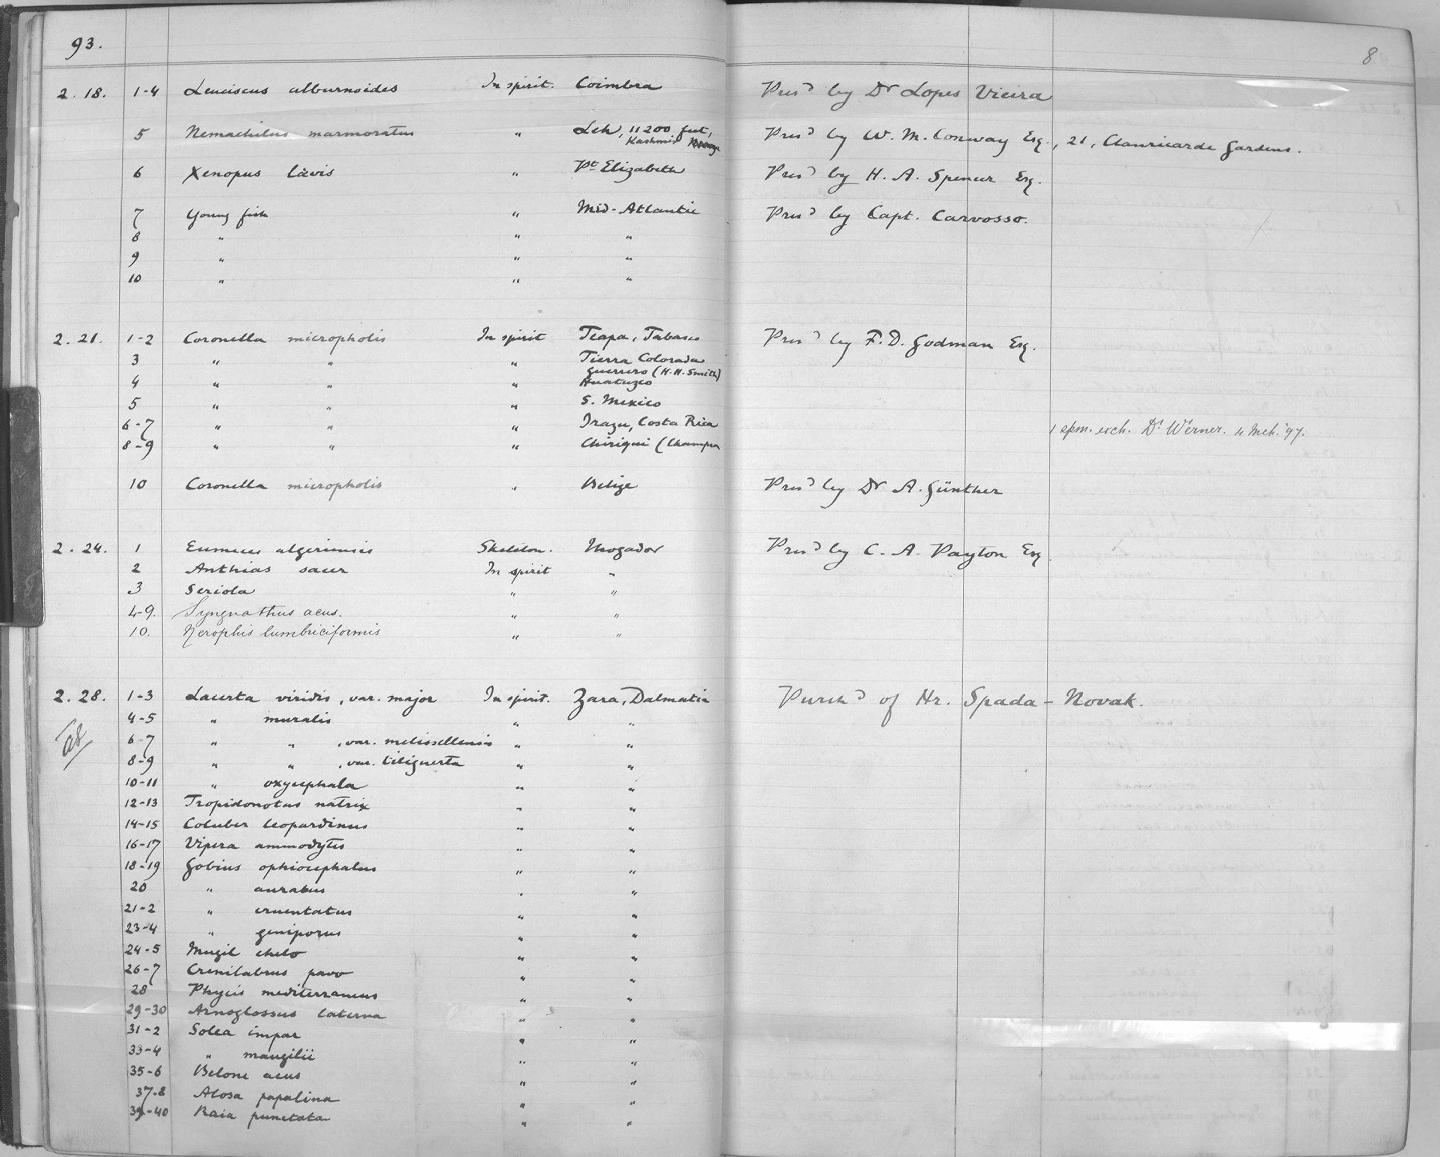 93.
8
2. 18. 1-4 Leuciscus alburnoides In spirit. Coimbra Presd by Dr Lopes Vieira
5 Nemachilus marmoratus " Leh, 11200 feet, Kashmir Presd by W. M. Conway Esq., 21, Clanricarde Gardens.
6 Xenopus lævis " Pt Elizabeth Presd by H. A. Spencer Esq.
7 Young fish " Mid-Atlantic Presd by Capt. Carvosso.
8 " " "
9 " " "
10 " " "
2. 21. 1-2 Coronella micropholis In spirit Teapa, Tabasco Presd by F. D. Godman Esq.
3 " " " Tierra Colorada Guerrero (H. H. Smith)
4 " " " Huatuzco
5 " " " S. Mexico
6-7 " " " Irazu, Costa Rica 1 spm. exch. Dr Werner. 4 Mch. '97.
8-9 " " " Chiriqui (Champn
10 Coronella micropholis " Belize Presd by Dr A. Günther
2. 24. 1 Eumeces algeriensis Skeleton. Mogador Presd by C. A. Payton Esq
2 Anthias sacer In spirit "
3 Seriola " "
4-9. Syngnathus acus. " "
10. Nerophis lumbriciformis " "
2. 28. 1-3 Lacerta viridis, var. major In spirit. Zara, Dalmatia Purchd of Hr. Spada-Novak.
4-5 " muralis " "
6-7 " " , var. melissellensis " "
8-9 " " , var. tiliguerta " "
10-11 " oxycephala " "
12-13 Tropidonotus natrix " "
14-15 Coluber leopardinus " "
16-17 Vipera ammodytes " "
18-19 Gobius ophiocephalus " "
20 " auratus " "
21-2 " cruentatus " "
23-4 " geniporus " "
24-5 Mugil chelo " "
26-7 Crenilabrus pavo " "
28 Phycis mediterraneus " "
29-30 Arnoglossus laterna " "
31-2 Solea impar " "
33-4 " mangilii " "
35-6 Belone acus " "
37-8 Alosa papalina " "
39-40 Raia punctata " "